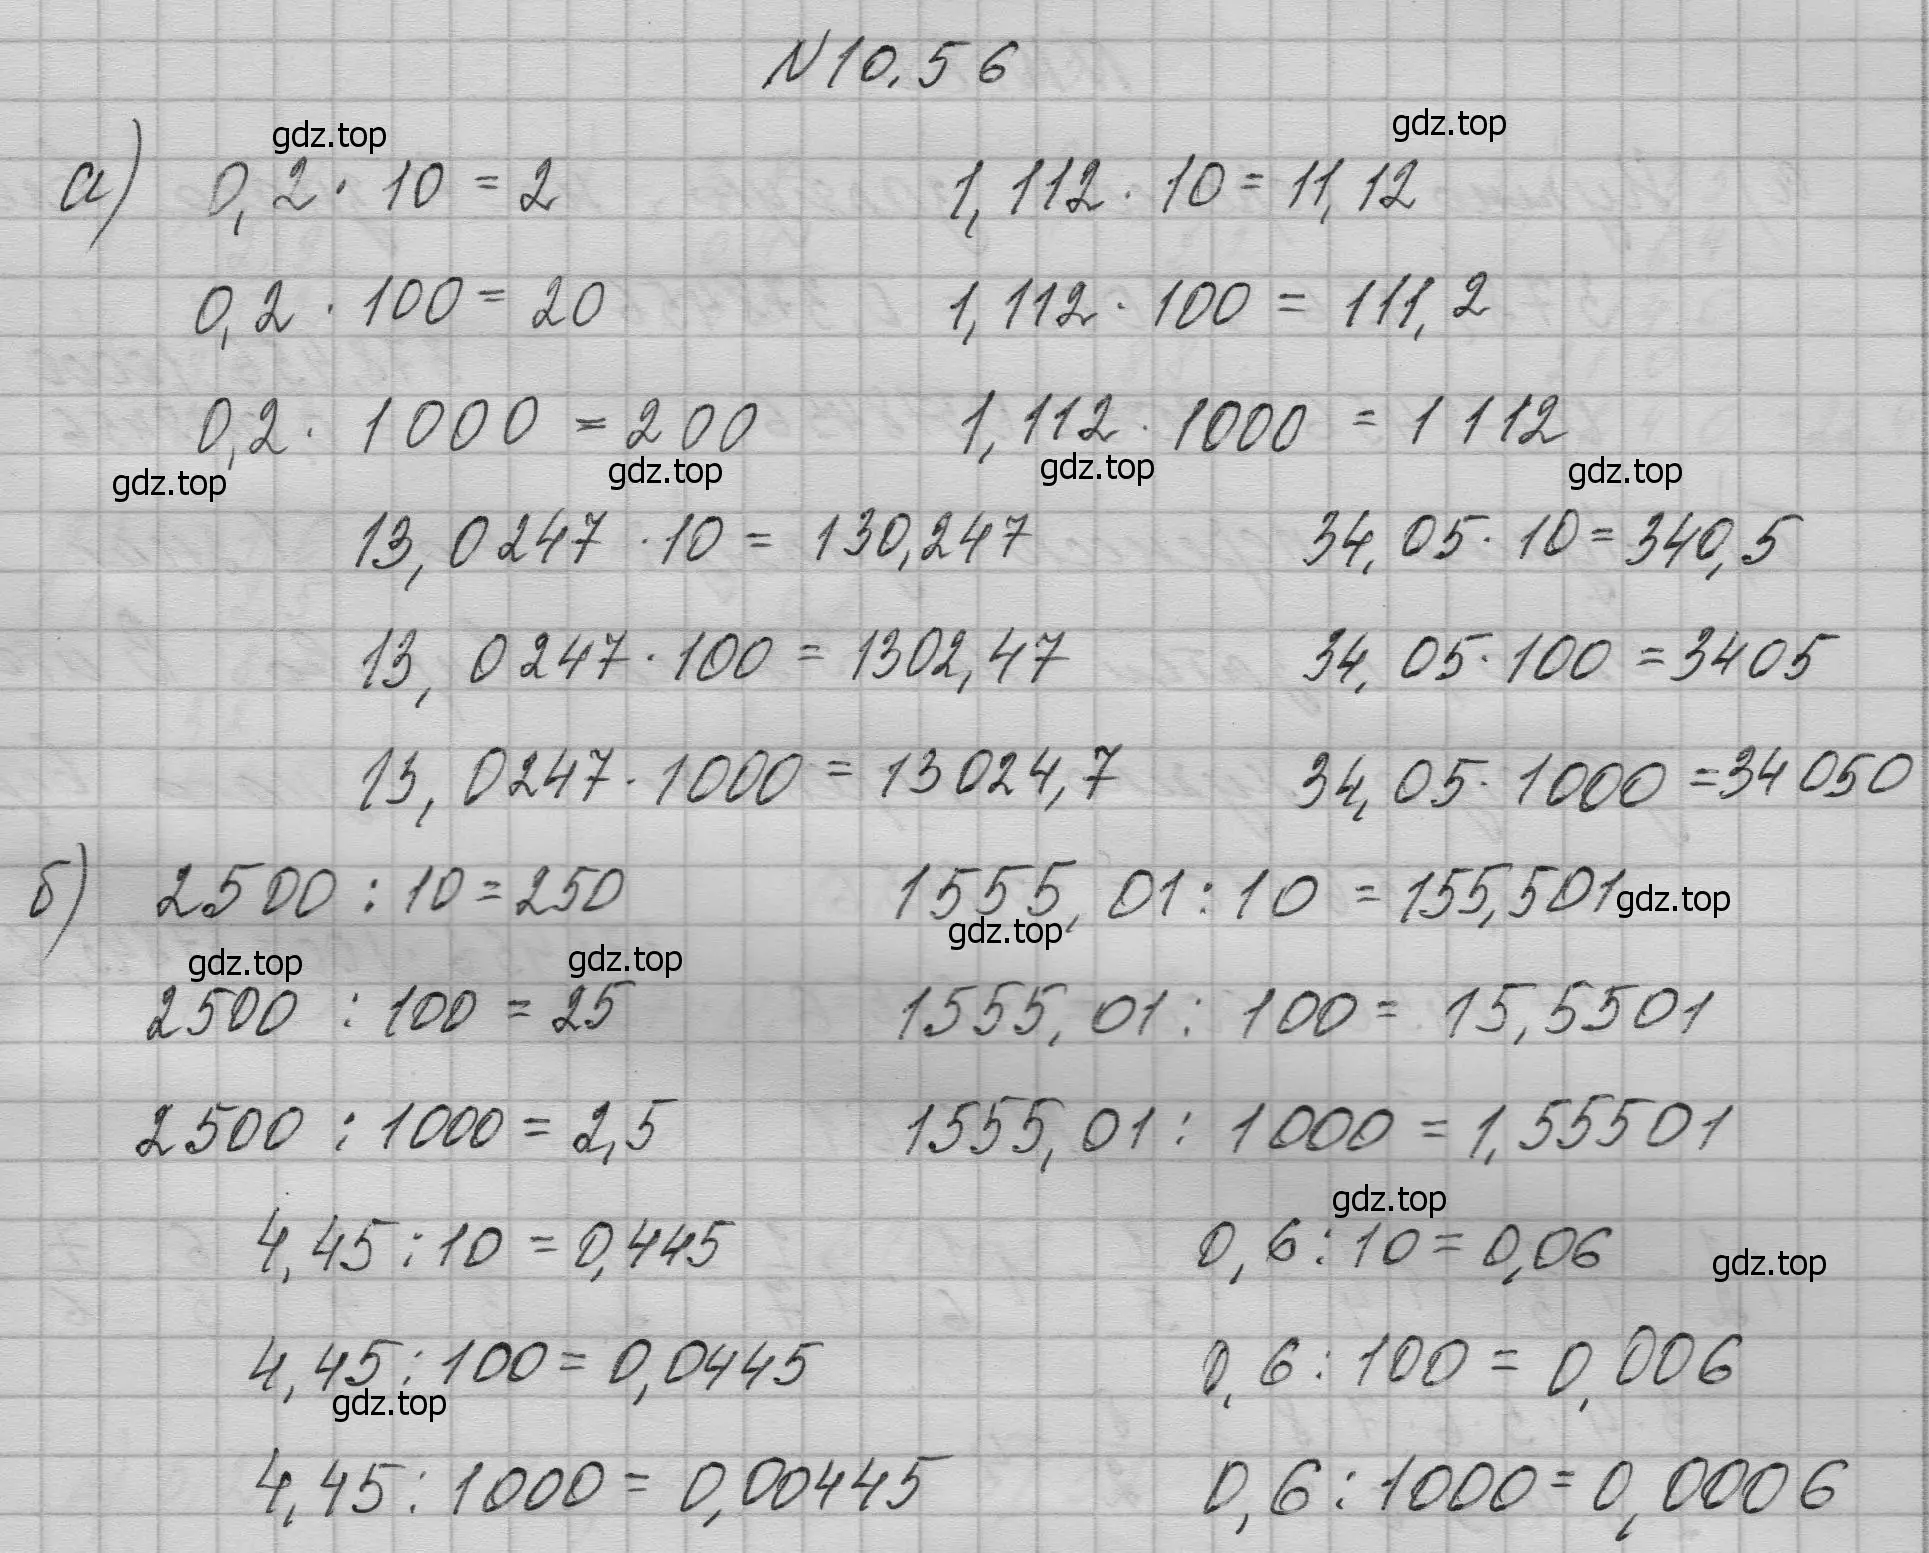 N 10.56
gdz.top gdz.top
а) 0,2 · 10 = 2 1,112 · 10 = 11,12
0,2 · 100 = 20 1,112 · 100 = 111,2
0,2 · 1000 = 200 1,112 · 1000 = 1112
gdz.top gdz.top gdz.top gdz.top
13,0247 · 10 = 130,247 34,05 · 10 = 340,5
13,0247 · 100 = 1302,47 34,05 · 100 = 3405
13,0247 · 1000 = 13024,7 34,05 · 1000 = 34050
б) 2500 : 10 = 250 1555,01 : 10 = 155,501 gdz.top
gdz.top gdz.top gdz.top
2500 : 100 = 25 1555,01 : 100 = 15,5501
2500 : 1000 = 2,5 1555,01 : 1000 = 1,55501
gdz.top
4,45 : 10 = 0,445 0,6 : 10 = 0,06 gdz.top
4,45 : 100 = 0,0445 0,6 : 100 = 0,006
gdz.top
4,45 : 1000 = 0,00445 0,6 : 1000 = 0,0006